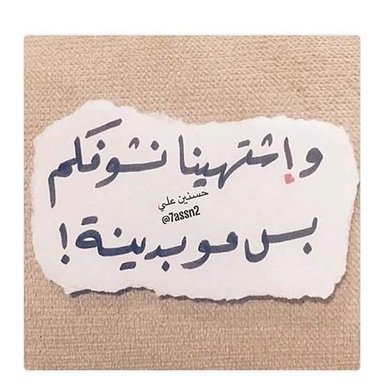 وإشتهينا نشوفكم
حسنين علي
@7assn2
بس مو بدينة !